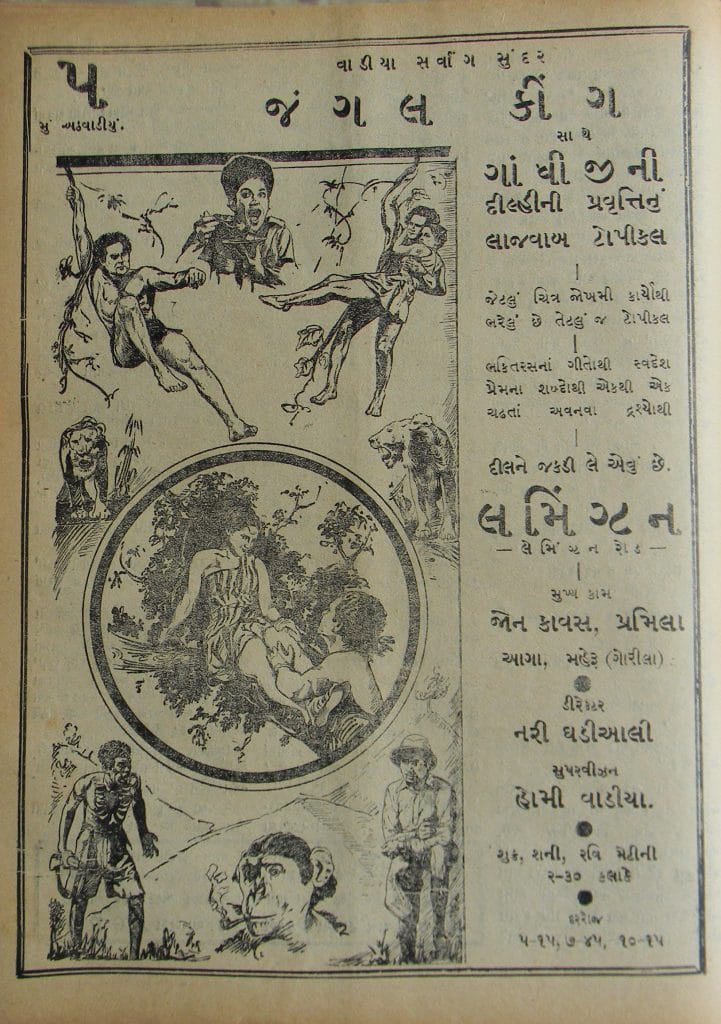 ૫
મું અઠવાડીયું.
વાડીયા સર્વાંગ સુંદર
જંગલ કીંગ
સાથે
ગાંધીજીની
દીલ્હીની પ્રવૃત્તિનું
લાજવાબ ટોપીકલ
જેટલું ચિત્ર જોખમી કાર્યોથી
ભરેલું છે તેટલું જ ટોપીકલ
ભક્તિરસનાં ગીતોથી સ્વદેશ
પ્રેમના શબ્દોથી એકથી એક
ચઢતાં અવનવા દ્રશ્યોથી
દીલને જકડી લે એવું છે.
લેમિંગ્ટન
— લેમિંગ્ટન રોડ —
મુખ્ય કામ
જોન કાવસ, પ્રમિલા
આગા, મહેરૂ (ગોરીલા)
ડીરેક્ટર
નરી ઘડીઆલી
સુપરવીઝન
હોમી વાડીયા.
શુક્ર, શની, રવિ મેટીની
૨-૩૦ કલાકે
દરરોજ
૫-૧૫, ૭-૪૫, ૧૦-૧૫